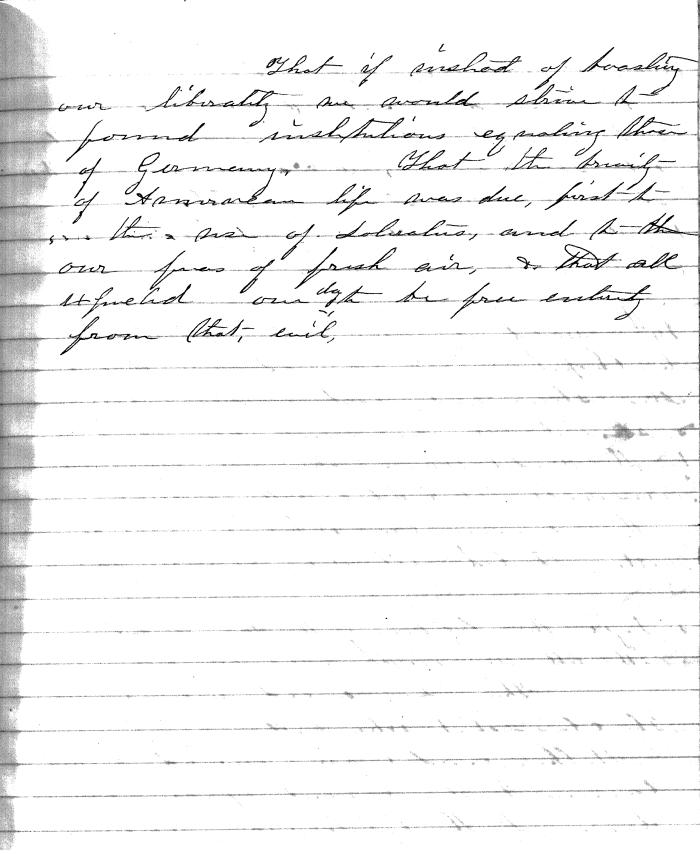 That if instead of boasting
our liberality we would strive to
found institutions equaling those
of Germany. That the brevity
of American life was due, first to
the use of Saleratus, and to the
our fear of fresh air, & that all
be free entirely
from that, evil,